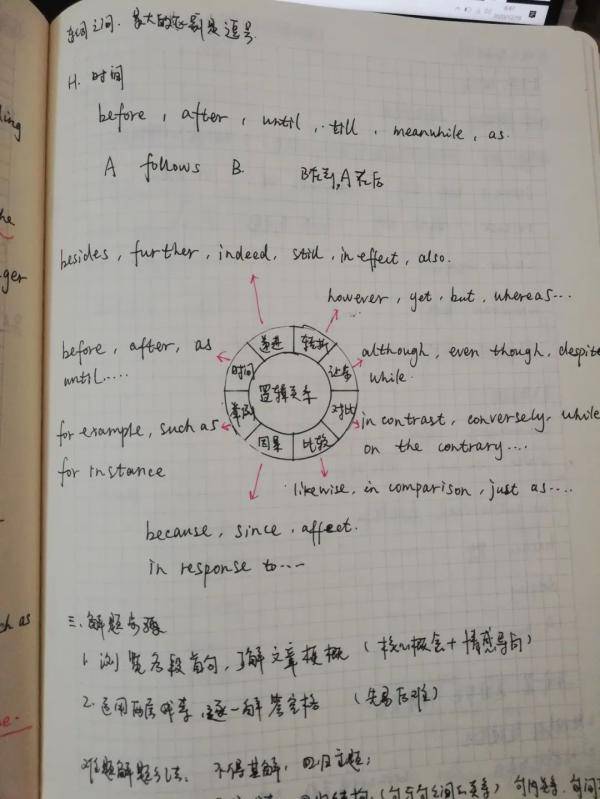 句间之间, 最大的区别是逗号
H. 时间
before, after, until, till, meanwhile, as.
A follows B. B在前, A在后
besides, further, indeed, still, in effect, also.
however, yet, but, whereas...
递进 转折
before, after, as
until.....
时间
although, even though, despite
while.
让步
逻辑关系
举例
for example, such as
for instance
对比
in contrast, conversely, while
on the contrary....
因果 比较
likewise, in comparison, just as....
because, since, affect.
in response to....
三. 解题步骤
1. 浏览各段首句, 了解文章梗概 (核心概念+情感导向)
2. 运用两层咁等, 逐一解答空格 (先易后难)
难题解题方法: 不得其解, 回归主题;